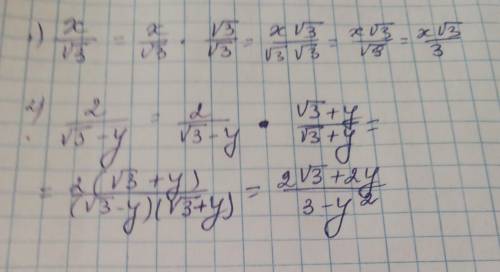 1) x/√3 = x/√3 · √3/√3 = x√3/√3√3 = x√3/√3 = x√3/3
2) 2/(√3-y) = 2/(√3-y) · (√3+y)/(√3+y) =
= 2(√3+y)/(√3-y)(√3+y) = (2√3+2y)/(3-y²)